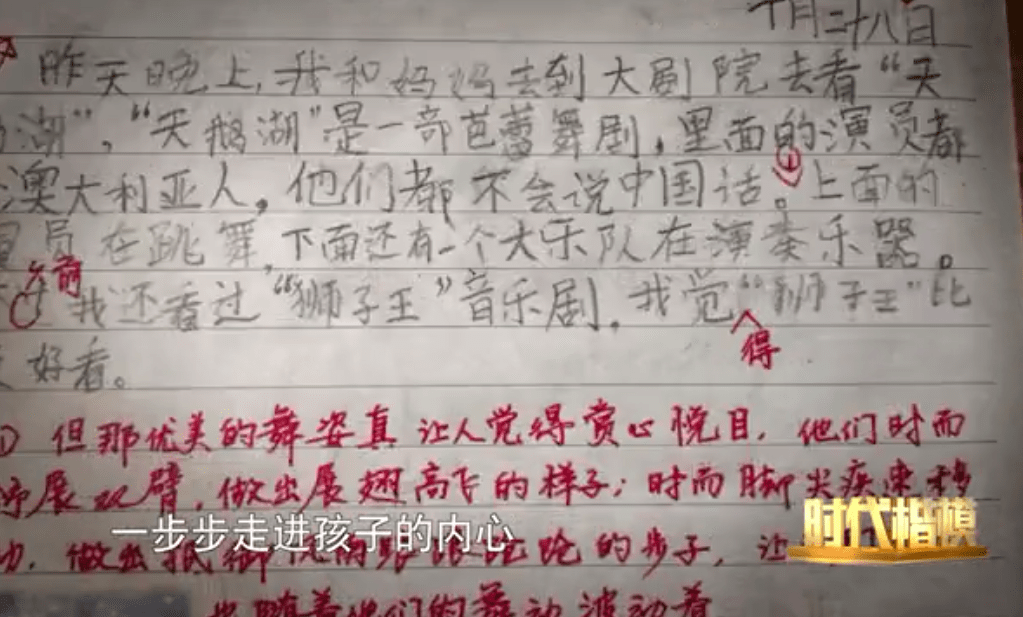 十月二十八日
昨天晚上,我和妈妈去到大剧院去看“天
湖”,“天鹅湖”是一部芭蕾舞剧,里面的演员都
澳大利亚人,他们都不会说中国话。①上面的
员在跳舞,下面还有一个大乐队在演奏乐器。
前
我还看过“狮子王”音乐剧,我觉“狮子王”比
得
好看。
① 但那优美的舞姿真让人觉得赏心悦目,他们时而
展双臂,做出展翅高飞的样子;时而脚尖疾速移
一步步走进孩子的内心
时代楷模
动,做出 的步子,让
随着他们的舞动波动着